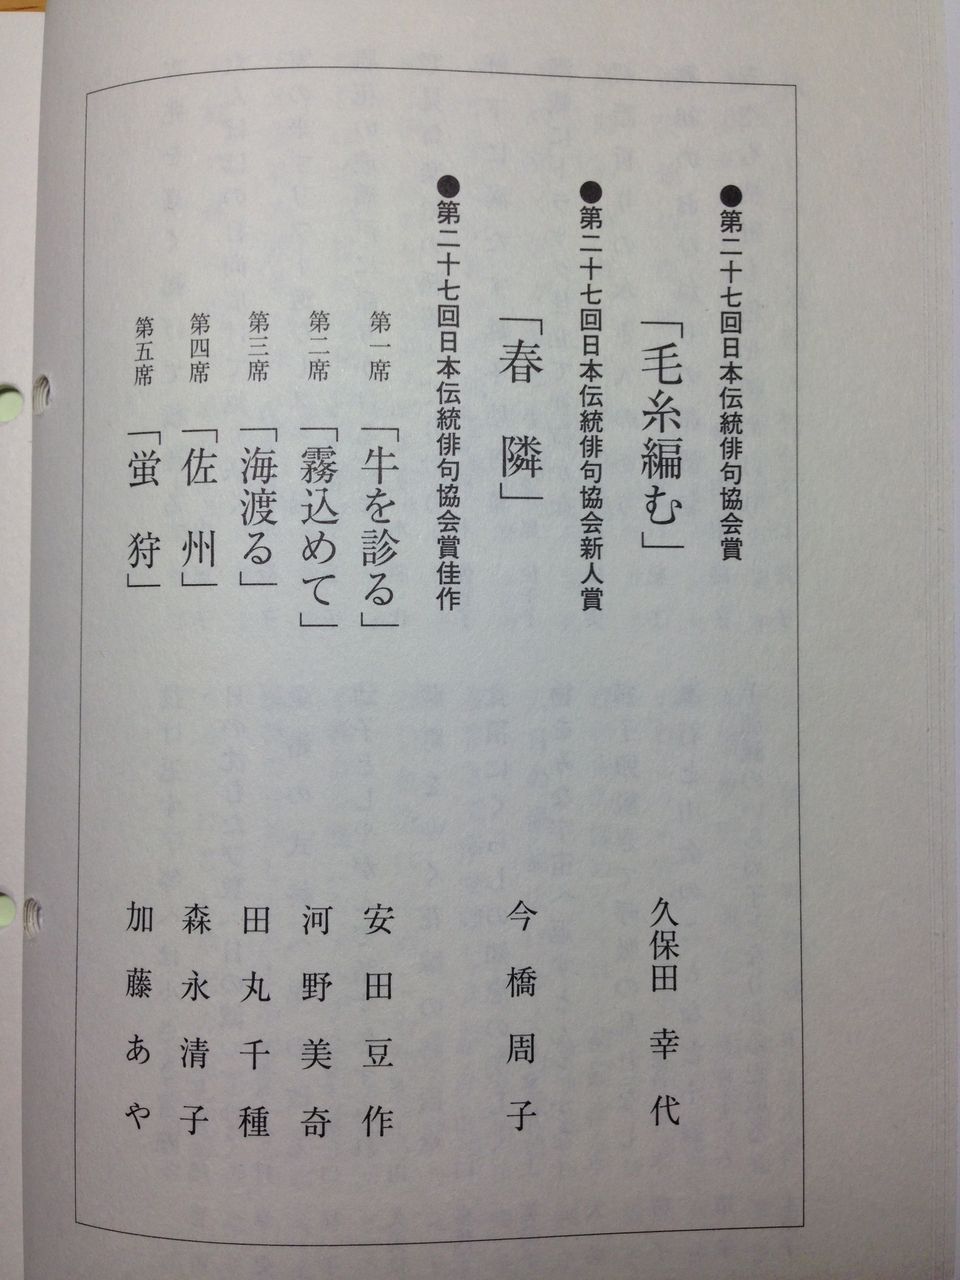 ●第二十七回日本伝統俳句協会賞
「毛糸編む」 久保田 幸 代
●第二十七回日本伝統俳句協会新人賞
「春 隣」 今 橋 周 子
●第二十七回日本伝統俳句協会賞佳作
第一席 「牛を診る」 安 田 豆 作
第二席 「霧込めて」 河 野 美 奇
第三席 「海渡る」 田 丸 千 種
第四席 「佐 州」 森 永 清 子
第五席 「蛍 狩」 加 藤 あ や